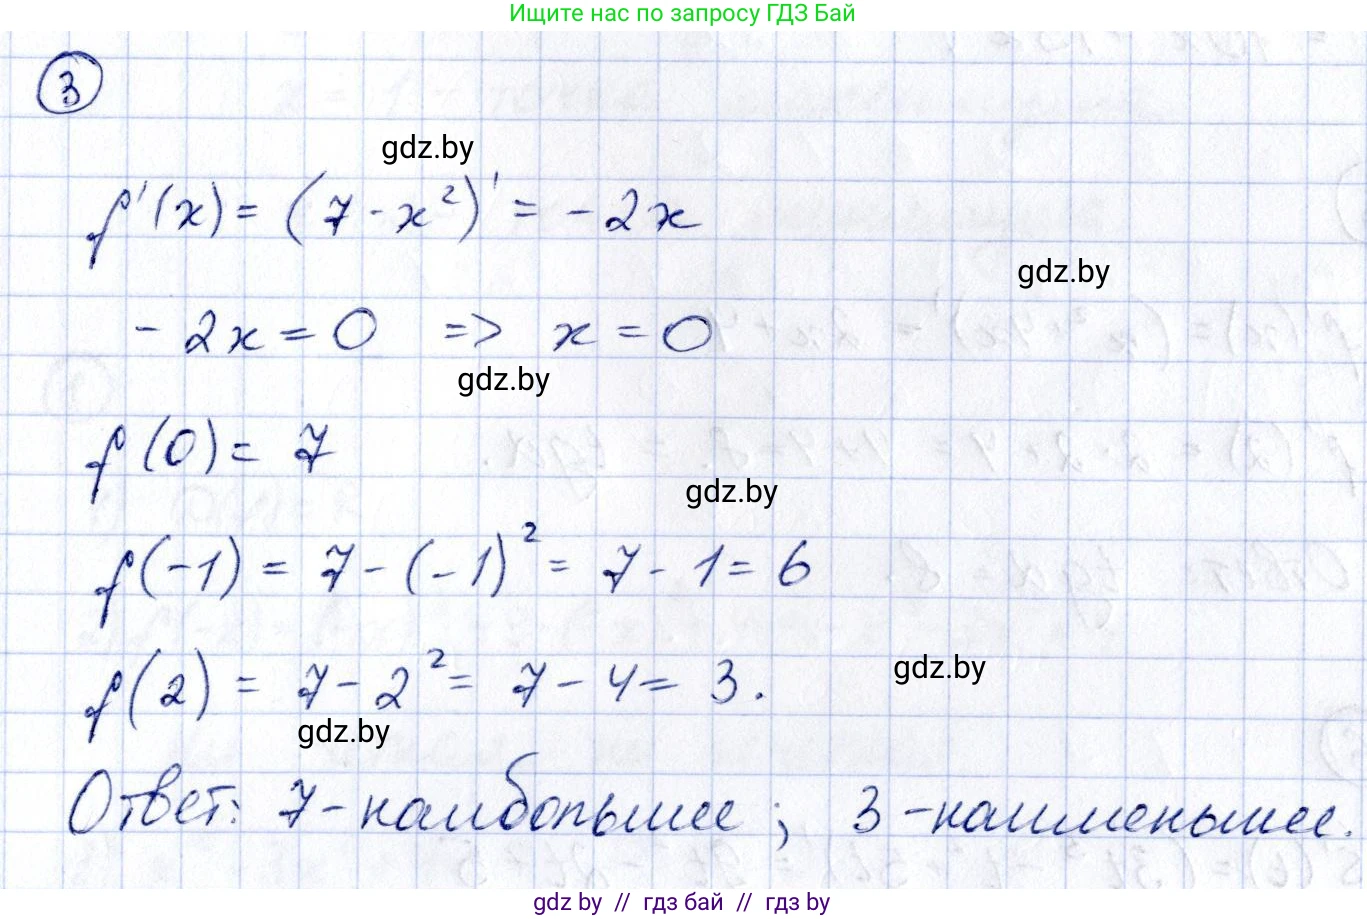 Ищите нас по запросу ГДЗ Бай
3
gdz.by
f'(x) = (7 - x²)' = - 2x
gdz.by
- 2x = 0 => x = 0
gdz.by
f(0) = 7
gdz.by
f(-1) = 7 - (-1)² = 7 - 1 = 6
f(2) = 7 - 2² = 7 - 4 = 3.
gdz.by
gdz.by
Ответ: 7 - наибольшее ; 3 - наименьшее.
gdz by // гдз бай // gdz by